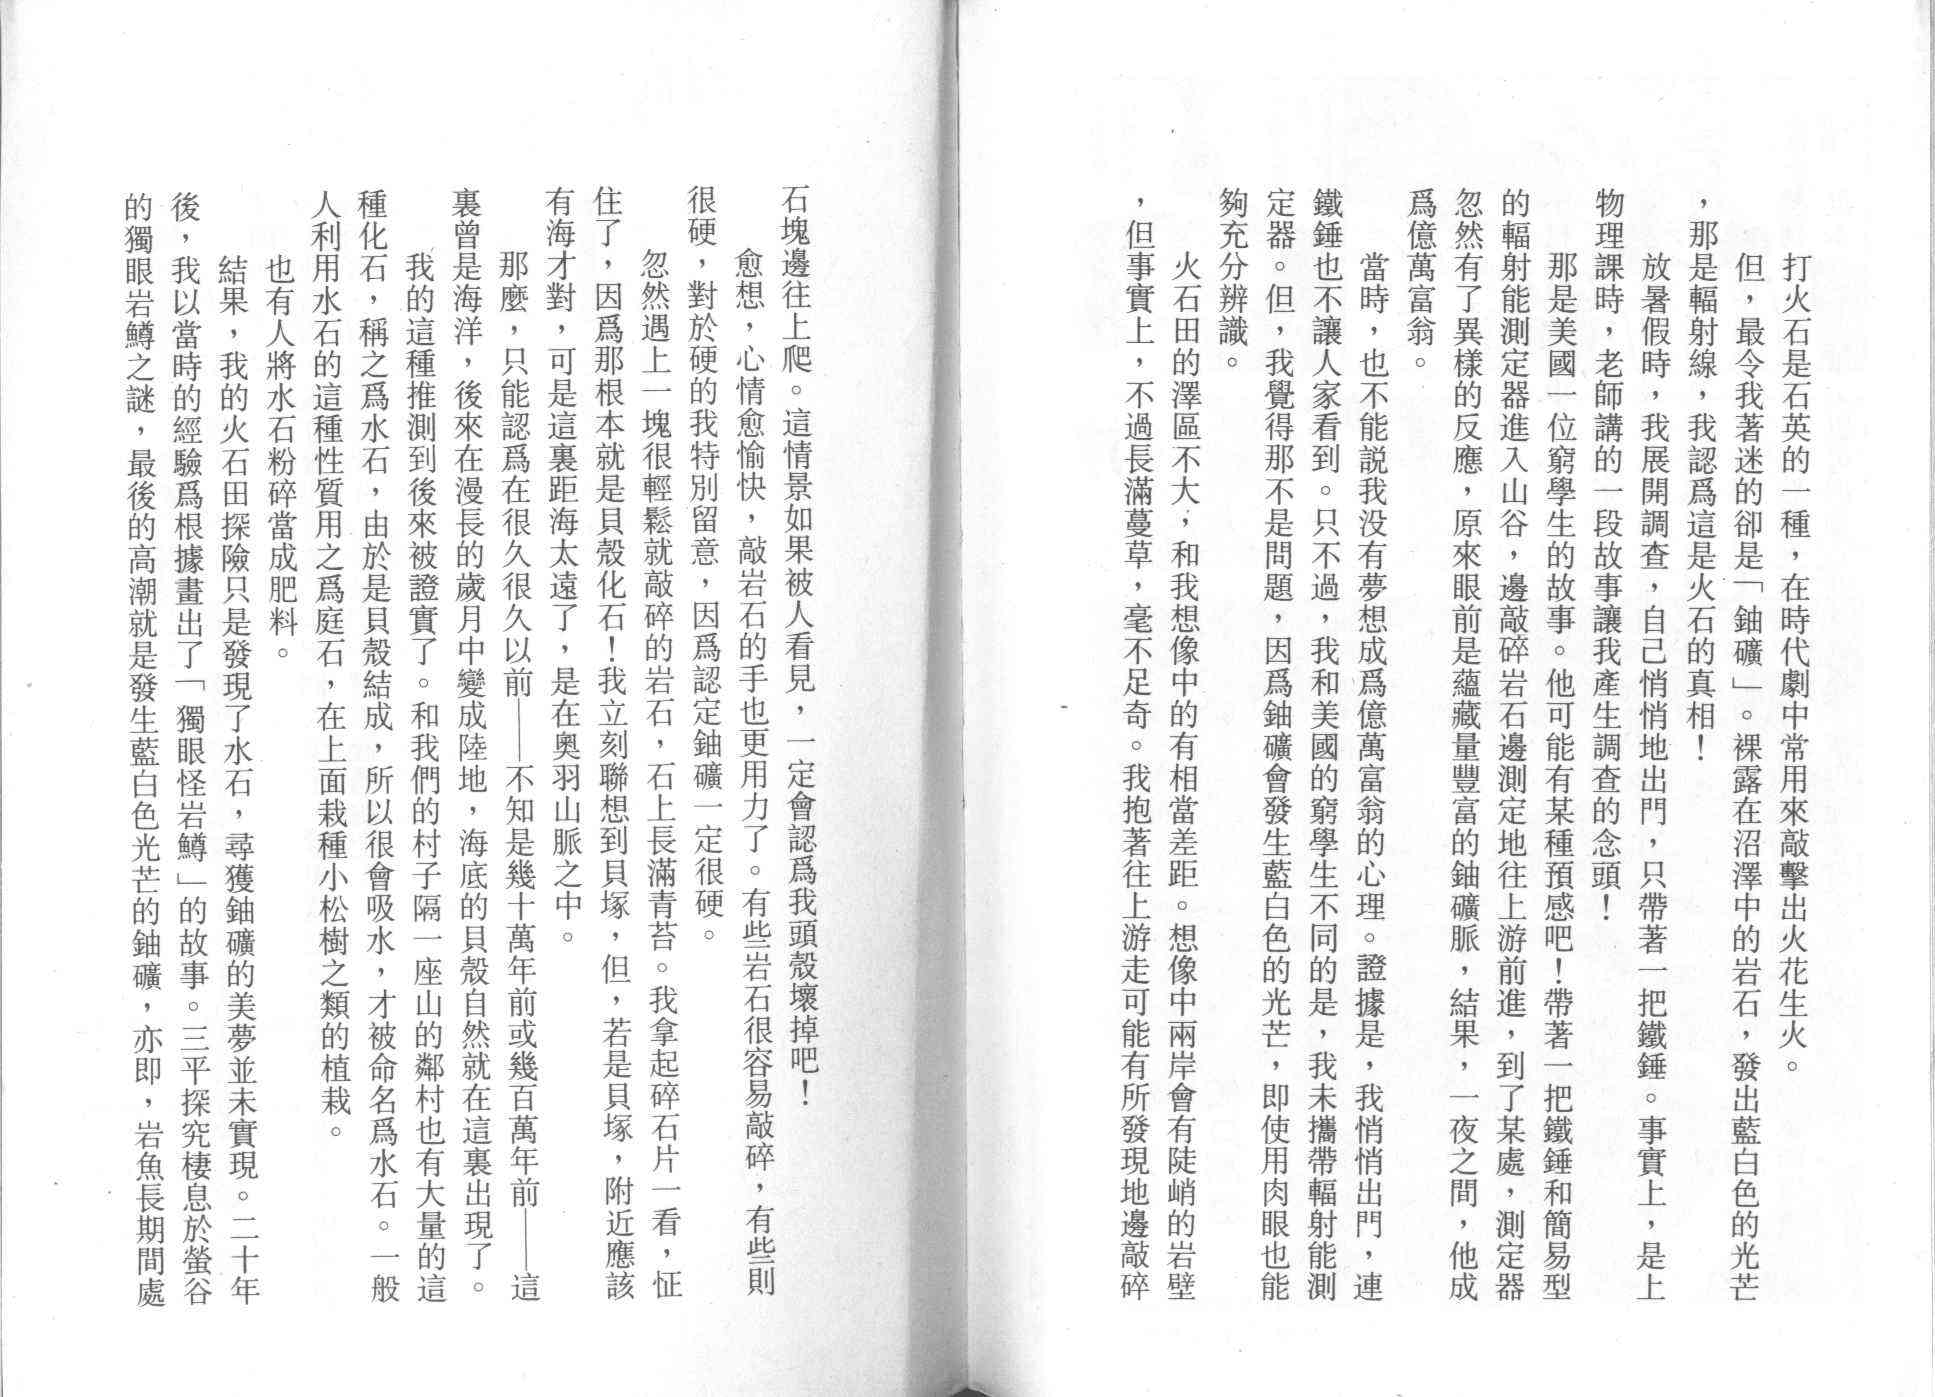 打火石是石英的一種，在時代劇中常用來敲擊出火花生火。
但，最令我著迷的卻是「鈾礦」。裸露在沼澤中的岩石，發出藍白色的光芒
，那是輻射線，我認爲這是火石的真相！
放暑假時，我展開調查，自己悄悄地出門，只帶著一把鐵錘。事實上，是上
物理課時，老師講的一段故事讓我產生調查的念頭！
那是美國一位窮學生的故事。他可能有某種預感吧！帶著一把鐵錘和簡易型
的輻射能測定器進入山谷，邊敲碎岩石邊測定地往上游前進，到了某處，測定器
忽然有了異樣的反應，原來眼前是蘊藏量豐富的鈾礦脈，結果，一夜之間，他成
爲億萬富翁。
當時，也不能説我没有夢想成爲億萬富翁的心理。證據是，我悄悄出門，連
鐵錘也不讓人家看到。只不過，我和美國的窮學生不同的是，我未攜帶輻射能測
定器。但，我覺得那不是問題，因爲鈾礦會發生藍白色的光芒，即使用肉眼也能
夠充分辨識。
火石田的澤區不大，和我想像中的有相當差距。想像中兩岸會有陡峭的岩壁
，但事實上，不過長滿蔓草，毫不足奇。我抱著往上游走可能有所發現地邊敲碎
石塊邊往上爬。這情景如果被人看見，一定會認爲我頭殼壞掉吧！
愈想，心情愈愉快，敲岩石的手也更用力了。有些岩石很容易敲碎，有些則
很硬，對於硬的我特別留意，因爲認定鈾礦一定很硬。
忽然遇上一塊很輕鬆就敲碎的岩石，石上長滿青苔。我拿起碎石片一看，怔
住了，因爲那根本就是貝殼化石！我立刻聯想到貝塚，但，若是貝塚，附近應該
有海才對，可是這裏距海太遠了，是在奧羽山脈之中。
那麼，只能認爲在很久很久以前——不知是幾十萬年前或幾百萬年前——這
裏曾是海洋，後來在漫長的歲月中變成陸地，海底的貝殼自然就在這裏出現了。
我的這種推測到後來被證實了。和我們的村子隔一座山的鄰村也有大量的這
種化石，稱之爲水石，由於是貝殼結成，所以很會吸水，才被命名爲水石。一般
人利用水石的這種性質用之爲庭石，在上面栽種小松樹之類的植栽。
也有人將水石粉碎當成肥料。
結果，我的火石田探險只是發現了水石，尋獲鈾礦的美夢並未實現。二十年
後，我以當時的經驗爲根據畫出了「獨眼怪岩鱒」的故事。三平探究棲息於螢谷
的獨眼岩鱒之謎，最後的高潮就是發生藍白色光芒的鈾礦，亦即，岩魚長期間處